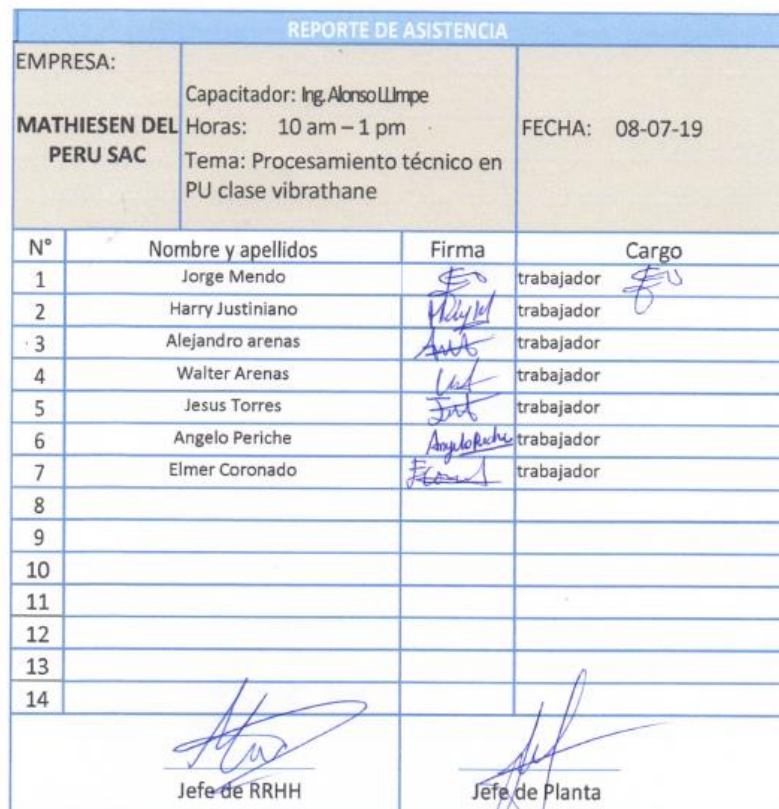 REPORTE DE ASISTENCIA
EMPRESA:
MATHIESEN DEL PERU SAC
Capacitador: Ing. Alonso LLImpe
Horas: 10 am – 1 pm
Tema: Procesamiento técnico en
PU clase vibrathane
FECHA: 08-07-19
N° Nombre y apellidos Firma Cargo
1 Jorge Mendo trabajador
2 Harry Justiniano trabajador
3 Alejandro arenas trabajador
4 Walter Arenas trabajador
5 Jesus Torres trabajador
6 Angelo Periche Angelo Periche trabajador
7 Elmer Coronado trabajador
8
9
10
11
12
13
14
Jefe de RRHH Jefe de Planta